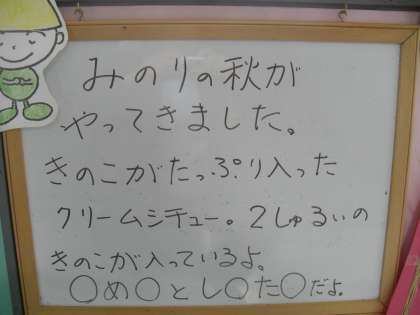 みのりの秋が
やってきました。
きのこがたっぷり入った
クリームシチュー。2しゅるいの
きのこが入っているよ。
○め○とし○た○だよ。